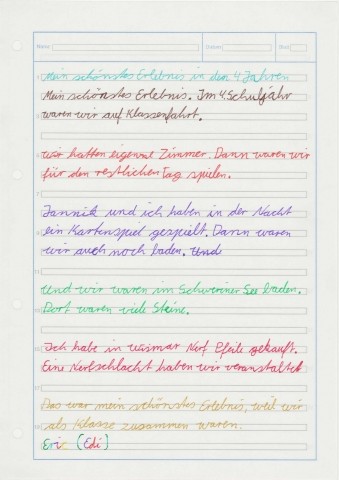 Name
Datum
Blatt
Mein schönstes Erlebnis in den 4 Jahren
Mein schönstes Erlebnis. Im 4. Schuljahr
waren wir auf Klassenfahrt.
Wir hatten eigene Zimmer. Dann waren wir
für den restlichen Tag spielen.
Jannik und ich haben in der Nacht
ein Kartenspiel gespielt. Dann waren
wir auch noch baden. Und
Und wir waren im Schweriner See baden.
Dort waren viele Steine.
Ich habe in Wismar Nerf Pfeile gekauft.
Eine Nerfschlacht haben wir veranstaltet
Das war mein schönstes Erlebnis, weil wir
als Klasse zusammen waren.
Eric (Edi)